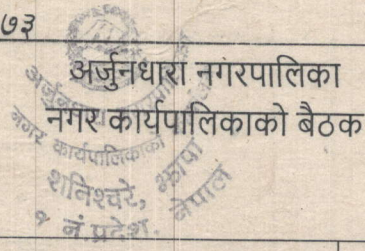 ७३
अर्जुनधारा नगरपालिका
नगर कार्यपालिकाको बैठक
नगर कार्यपालिकाको
शनिश्चरे, झापा
१ नं प्रदेश, नेपाल